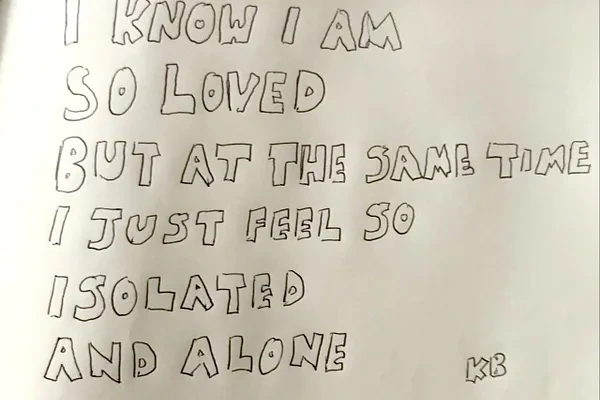 I KNOW I AM
SO LOVED
BUT AT THE SAME TIME
I JUST FEEL SO
ISOLATED
AND ALONE
KB